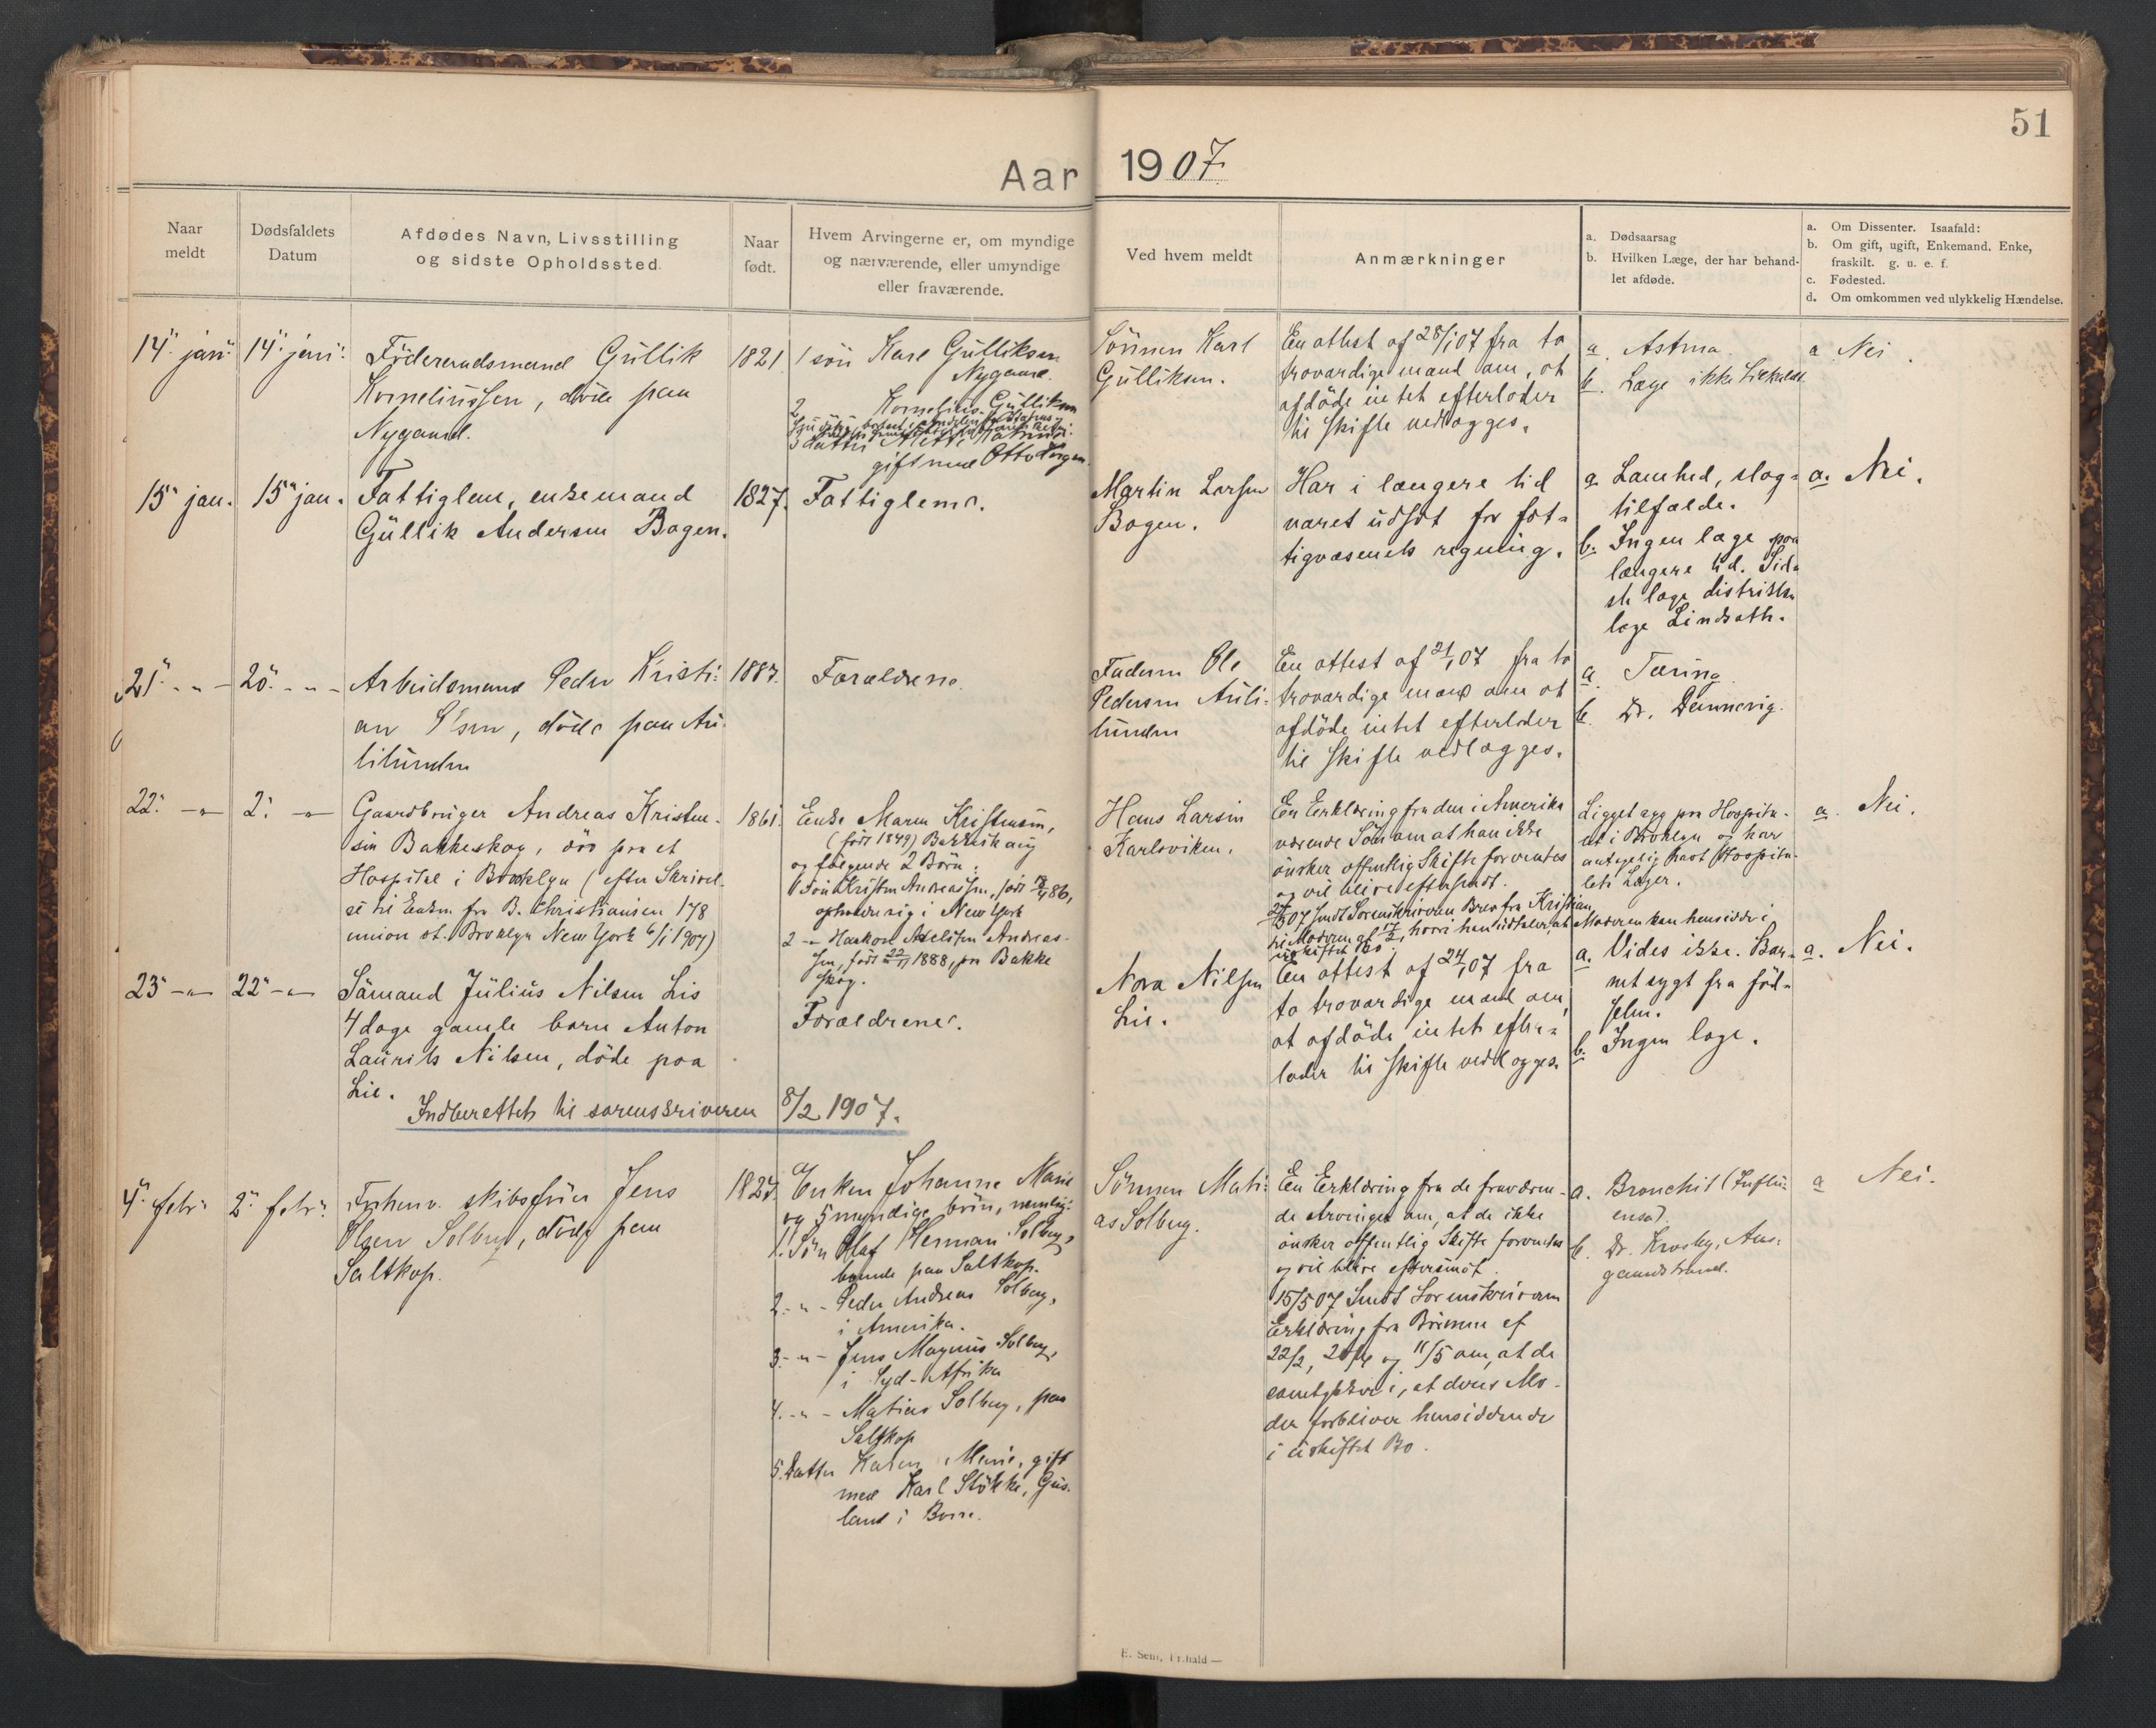 51
Aar 1907.
Naar
meldt
Dødsfaldets
Datum
Afdødes Navn, Livsstilling
og sidste Opholdssted.
Naar
født.
Hvem Arvingerne er, om myndige
og nærværende, eller umyndige
eller fraværende.
Ved hvem meldt
Anmærkninger
a. Dødsaarsag
b. Hvilken Læge, der har behand-
let afdøde.
a. Om Dissenter. Isaafald:
b. Om gift, ugift, Enkemand. Enke,
fraskilt. g. u. e. f.
c. Fødested.
d. Om omkommen ved ulykkelig Hændelse.
14. jan.
14. jan.
Föderaadsmand Gullik
Kornelinssen, döde paa
Nygaard.
1821
1 sön Karl Gulliksen
Nygaard.
2 Kornelius Gulliksen
3 datter
gift med Otto
Sönnen Karl
Gulliksen.
En attest af 28/1 07 fra to
troværdige mænd om, at
afdöde intet efterlader
til skifte vedlægges.
a. Astma.
b. Læge ikke tilkaldt
a. Nei.
15 jan.
15 jan.
Fattiglem, enkemand
Gullik Andersen Bagen.
1827.
Fattiglem.
Martin Larsen
Bogen.
Har i længere tid
været udsat for fat-
tigvæsenets regning.
a. Lamhed, slag-
tilfælde.
b. Ingen læge paa
længere tid. Sid-
ste læge distrikts-
læge Lindseth.
a. Nei.
21. - " -
20. - " -
Arbeidsmand Peder Kristi-
an Olsen, döde paa Au-
lilunden
1887.
Forældrene.
Faderen Ole
Pedersen Auli-
lunden
En attest af 21/1 07 fra to
troværdige mænd om at
afdöde intet efterlader
til skifte vedlægges.
a. Tæring
b. Dr. Dannevig.
22. - " -
2. - " -
Gaardbruger Andreas Kristen-
sen Bakkeskog, död paa et
Hospital i Brooklyn (efter Skrivel-
se til Enken fra B. Christiansen 178
union st. Broklyn New York 6/1 1907)
1861.
Enke Maren Kristensen,
(född 1849) Bakkeskaug
og følgende 2 Børn:
1 Sön Kristen Andreassen, född 86,
opholder sig i New York
2 - " - Haakon Axelsen Andreas-
sen, född 1888, pa Bakke
skog.
Hans Larsen
Karlsviken.
En Erklæring fra den i Amerika
værende Sön om at han ikke
önsker offentlig Skifte forventes
og vil blive eftersendt.
07 sendt Sorenskriveren Brev fra Kristian
til Moderen af hvori han udtaler, at Moderen kan hensidde i
uskiftet Bo.
Ligget syg paa Hospita-
let i Broklyn og har
antagelig havt Hospita-
lets Læger.
a. Nei.
23 - " -
22 - " -
Sömand Julius Nilsen Lis
4 dage gamle barn Anton
Laurits Nilsen, döde paa
Lie.
Forældrene.
Nora Nilsen
Lie.
En attest af 24/1 07 fra
to troværdige mænd om
at afdöde intet efter-
lader til skifte vedlægges.
a. Vides ikke. Bar-
net sygt fra föd-
selen.
b. Ingen læge.
a. Nei.
Indberettet til sorenskriveren 8/2 1907.
4. febr.
2. febr.
Forhenv. skibsförer Jens
Olsen Solberg, döde paa
Saltkop.
1827.
Enken Johanne Marie
og 5 myndige börn, nemlig:
1. Sön Olaf Herman Solberg,
boende paa Saltkop.
2. - " - Peder Andreas Solberg,
i Amerika.
3. - " - Jens Magnus Solberg,
i Syd-Afrika
4. - " - Matias Solberg, paa
Saltkop
5. Datter Karen Marie, gift
med Karl Stökke, Gus-
land i Borre.
Sönnen Mati-
as Solberg.
En Erklæring fra de fraværen-
de Arvinger om, at de ikke
önsker offentlig Skifte forventes
og vil blive eftersendt.
15/5 07 Sendt Sorenskriveren
Erklæring fra Börnene af
22/2, 20/4 og 11/5 om, at de
samtykker i, at deres Mo-
der forbliver hensiddende
i uskiftet Bo.
a. Bronchit (Influ-
ensa).
b. Dr. Krosby, Aas-
gaardstrand.
a Nei.
E. Sem, Fr.hald —